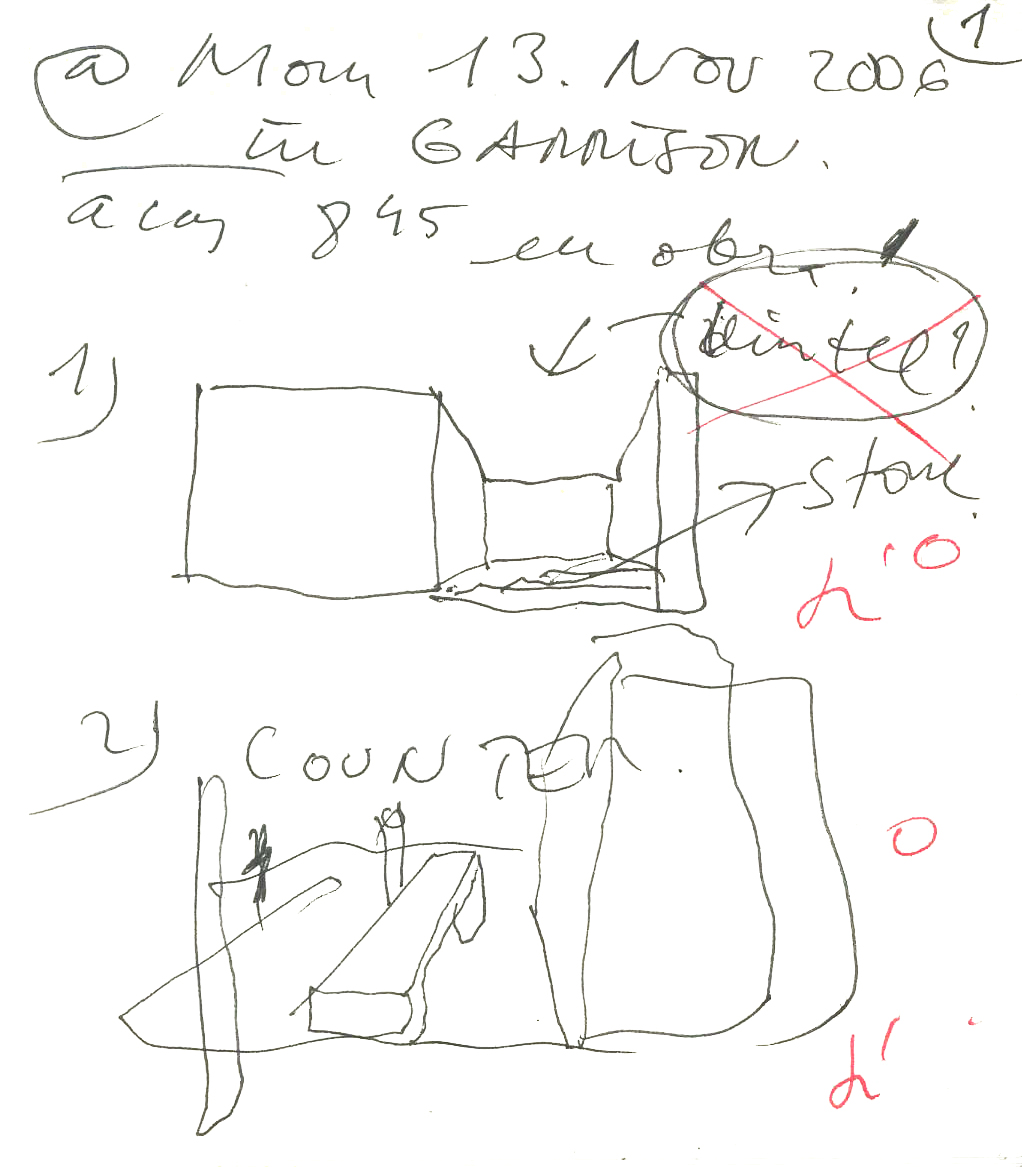 1
@ Mon 13. Nov 2006
in GARRISON.
a las 845 en obra.
dintel?
1)
stone.
L'O
2) COUNTER.
O
L'